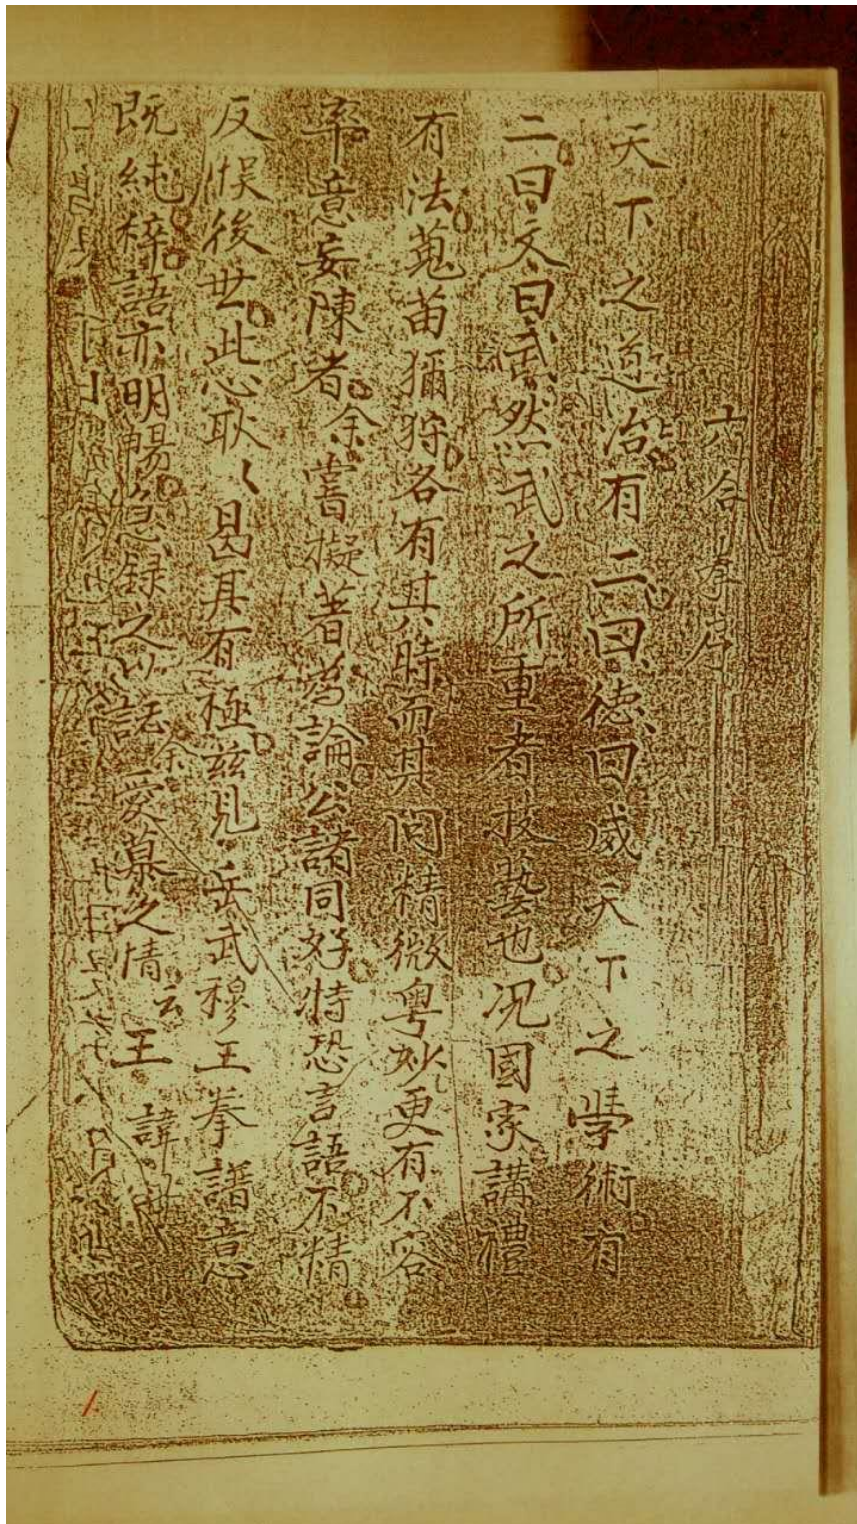 六合拳序
天下之道治有二曰德曰威天下之學術有
二曰文曰武然武之所重者技藝也况國家講禮
有法蒐苗獮狩各有其時而其间精微粤妙更有不容
率意妄陳者余嘗擬著為論公諸同好特恐言語不精
反悞後世此心耿〻曷其有極兹見岳武穆王拳譜意
既純稡語亦明暢急録之以誌余愛慕之情云王 諱
1